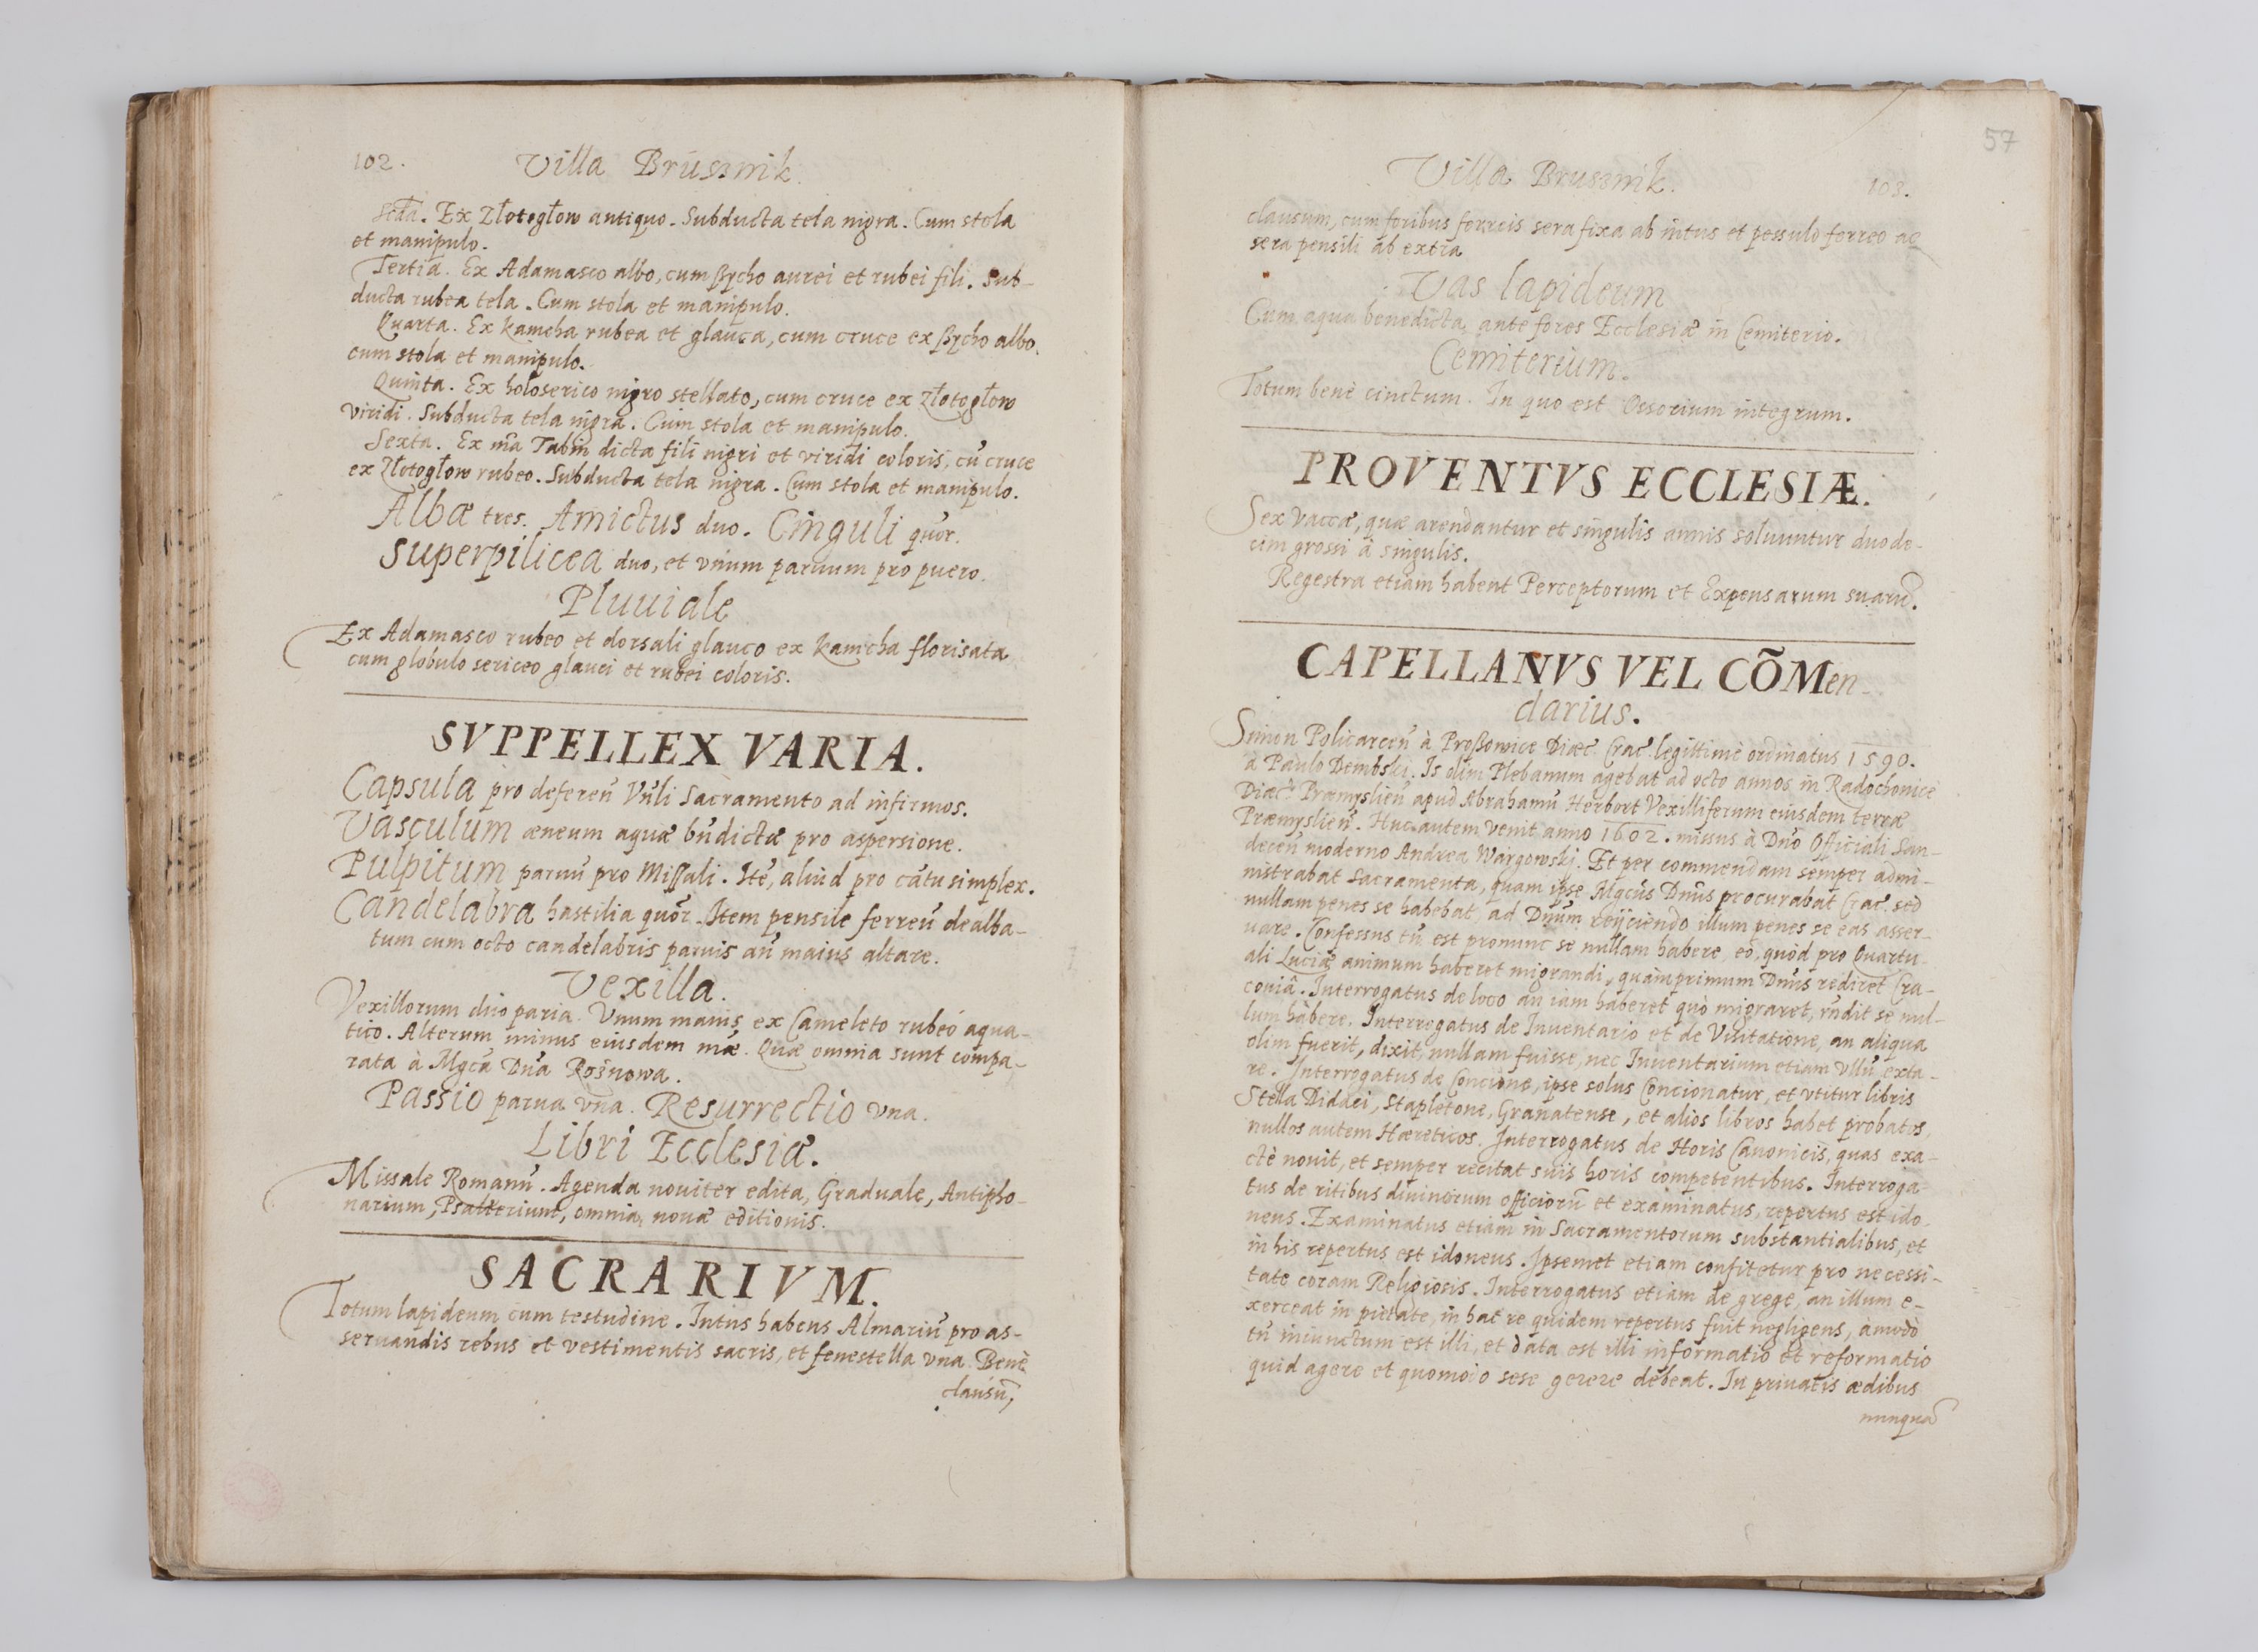 102.
Villa Brusznik.
Scda. Ex Złotogłow antiquo. Subducta tela nigra. Cum stola
et manipulo.
Tertia. Ex Adamasco albo, cum ßycho aurei et rubei fili. Sub-
ducta rubea tela. Cum stola et manipulo.
Quarta. Ex kamcha rubea et glauca, cum cruce ex ßycho albo.
cum stola et manipulo.
Quinta. Ex holoserico nigro stellato, cum cruce ex Złotogłow
viridi. Subducta tela nigra. Cum stola et manipulo.
Sexta. Ex mã Tabin dicta fili nigri et viridi coloris, cũ cruce
ex Złotogłow rubeo. Subducta tela nigra. Cum stola et manipulo.
Albæ tres. Amictus duo. Cinguli quõr.
Superpilicea duo, et vnum paruum pro puero.
Pluuiale
Ex Adamasco rubeo et dorsali glauco ex kamcha florisata
cum globulo sericeo glauci et rubei coloris.
SVPPELLEX VARIA.
Capsula pro deferen̄ Vn̄li Sacramento ad infirmos.
Vasculum æneum aquæ bn̄dictæ pro aspersione.
Pulpitum paruũ pro Missali. Itẽ, aliud pro cãtu simplex.
Candelabra hastilia quõr. Item pensile ferreũ dealba-
tum cum octo candelabris paruis an̄ maius altare.
Vexilla.
Vexillorum duo paria. Vnum maius ex Cameleto rubeo aqua-
tico. Alterum minus eiusdem mæ. Quæ omnia sunt compa-
rata à Mgca Dn̄a Rožnowa.
Passio parua vna. Resurrectio vna.
Libri Ecclesiæ.
Missale Romanũ. Agenda nouiter edita, Graduale, Antipho-
narium, Psalterium, omnia nouæ editionis.
SACRARIVM.
Totum lapideum cum testudine. Intus habens Almariũ pro as-
seruandis rebus et vestimentis sacris, et fenestella vna. Benè
clausũ,
57
Villa Brusznik.
103.
clausum, cum foribus ferreis sera fixa ab intus et pessulo ferreo ac
sera pensili ab extra
Vas lapideum
Cum aqua benedicta, ante fores Ecclesiæ in Cemiterio.
Cemiterium.
Totum benè cinctum. In quo est Ossorium integrum.
PROVENTVS ECCLESIÆ.
Sex vaccæ, quæ arendantur et singulis annis soluuntur duode-
cim grossi à singulis.
Regestra etiam habent Perceptorum et Expensarum suarũ.
CAPELLANVS VEL CÕMen-
darius.
Simon Policarcen̄ à Proßowice Diæc. Crac. legittimè ordinatus 1590.
à Paulo Dembski. Is olim Plebanum agebat ad octo annos in Radochonice
Diæc. Præmyslien̄ apud Abrahamũ Herbort Vexilliferum eiusdem terræ
Præmyslien̄. Huc autem venit anno 1602. missus à Dn̄o Officiali San-
decen̄ moderno Andrea Wargowski. Et per commendam semper admi-
nistrabat Sacramenta, quam ipse Mgcũs Dn̄us procurabat Crac. sed
nullam penes se habebat, ad Dn̄um reijciendo illum penes se eas asser-
uare. Confessus tñ est pronunc se nullam habere, eò, quòd pro Quartu-
ali Luciæ animum haberet migrandi, quàmprimum Dn̄us rediret Cra-
couiâ. Interrogatus de loco an iam haberet quò migraret, rñdit se nul-
lum habere. Interrogatus de Inuentario et de Visitatione, an aliqua
olim fuerit, dixit, nullam fuisse, nec Inuentarium etiam vllũ exta-
re. Interrogatus de Concione, ipse solus Concionatur, et vtitur libris
Stella Didaci, Stapletone, Granatense, et alios libros habet probatos,
nullos autem Hæreticos. Interrogatus de Horis Canonicis, quas exa-
ctè nouit, et semper recitat suis horis competentibus. Interroga-
tus de ritibus diuinorum officiorũ et examinatus, repertus est ido-
neus. Examinatus etiam in Sacramentorum substantialibus, et
in his repertus est idoneus. Ipsemet etiam confitetur pro necessi-
tate coram Religiosis. Interrogatus etiam de grege, an illum e-
xerceat in pietate, in hac re quidem repertus fuit negligens, àmodò
tñ iniunctum est illi, et data est illi informatio et reformatio
quid agere et quomodo sese gerere debeat. In priuatis ædibus
nunquã